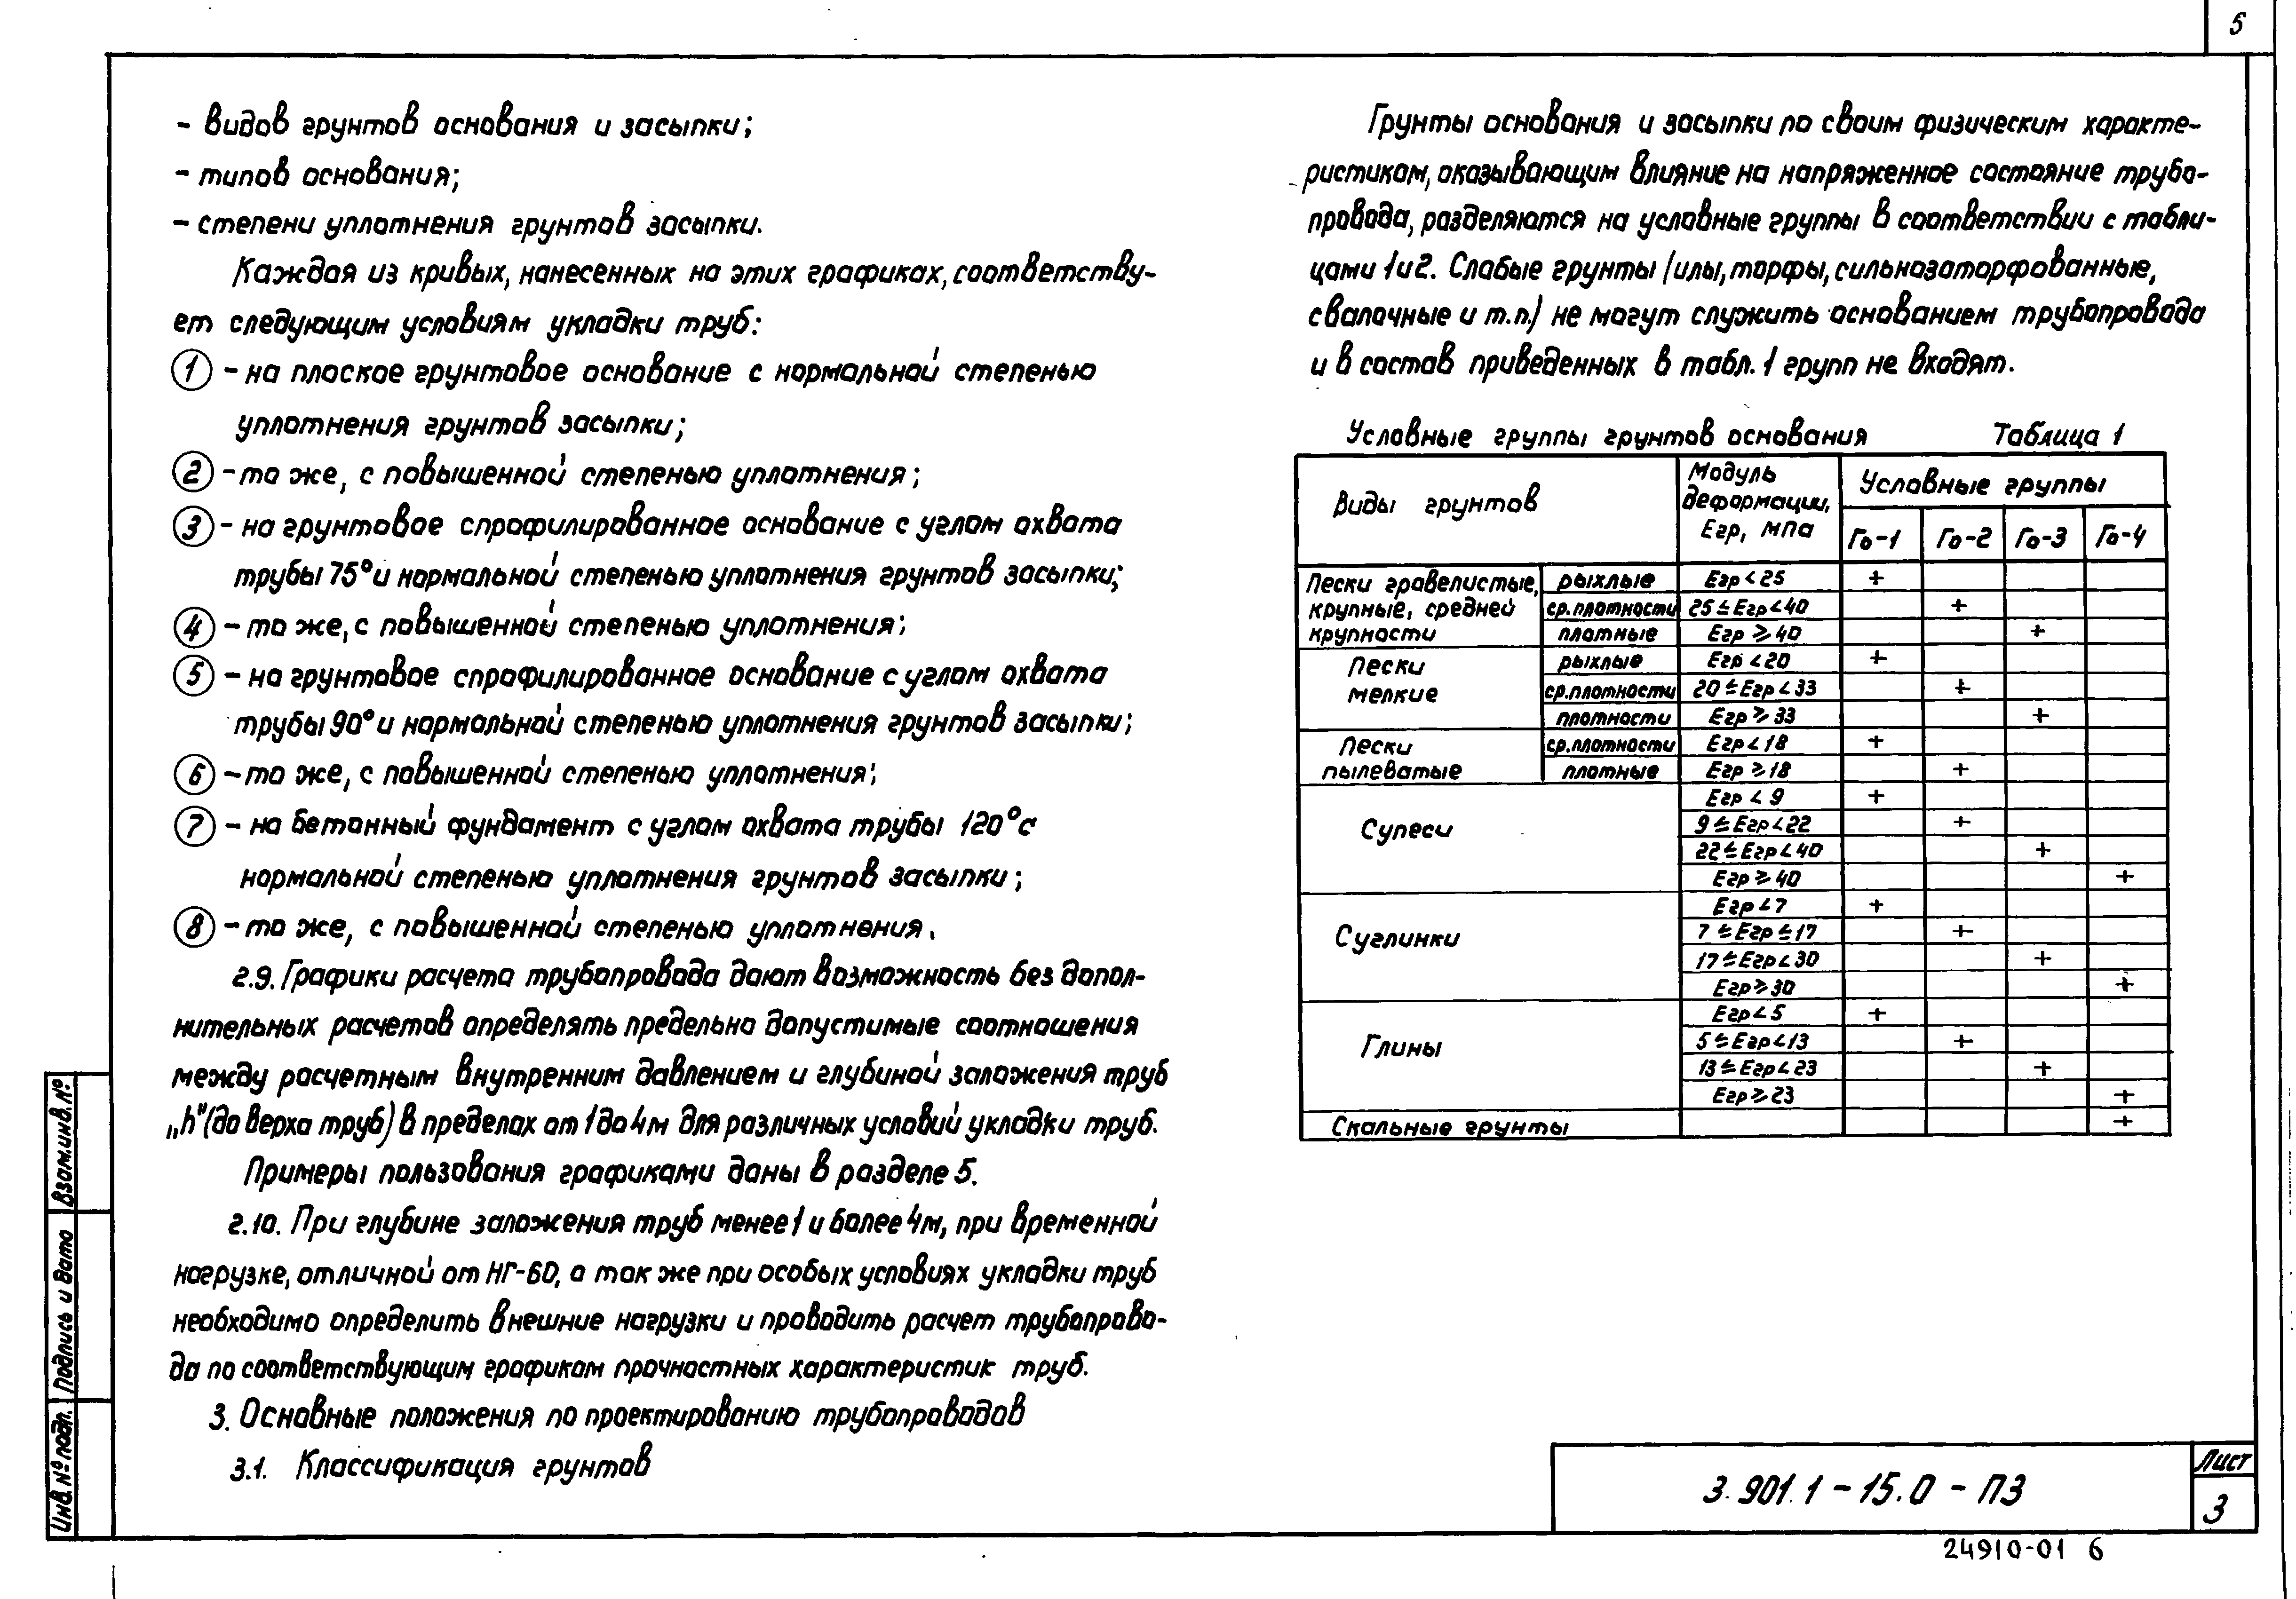 5
- видов грунтов основания и засыпки;
- типов основания;
- степени уплотнения грунтов засыпки.
Каждая из кривых, нанесенных на этих графиках, соответству-
ет следующим условиям укладки труб:
1 - на плоское грунтовое основание с нормальной степенью
уплотнения грунтов засыпки;
2 - то же, с повышенной степенью уплотнения;
3 - на грунтовое спрофилированное основание с углом охвата
трубы 75° и нормальной степенью уплотнения грунтов засыпки;
4 - то же, с повышенной степенью уплотнения;
5 - на грунтовое спрофилированное основание с углом охвата
трубы 90° и нормальной степенью уплотнения грунтов засыпки;
6 - то же, с повышенной степенью уплотнения;
7 - на бетонный фундамент с углом охвата трубы 120° с
нормальной степенью уплотнения грунтов засыпки;
8 - то же, с повышенной степенью уплотнения.
2.9. Графики расчета трубопровода дают возможность без допол-
нительных расчетов определять предельно допустимые соотношения
между расчетным внутренним давлением и глубиной заложения труб
„h" (до верха труб) в пределах от 1 до 4м для различных условий укладки труб.
Примеры пользования графиками даны в разделе 5.
2.10. При глубине заложения труб менее 1 и более 4м, при временной
нагрузке, отличной от НГ-60, а так же при особых условиях укладки труб
необходимо определить внешние нагрузки и проводить расчет трубопрово-
да по соответствующим графикам прочностных характеристик труб.
3. Основные положения по проектированию трубопроводов
3.1. Классификация грунтов
Грунты основания и засыпки по своим физическим характе-
ристикам, оказывающим влияние на напряженное состояние трубо-
провода, разделяются на условные группы в соответствии с табли-
цами 1 и 2. Слабые грунты /илы, торфы, сильнозаторфованные,
свалочные и т.п./ не могут служить основанием трубопровода
и в состав приведенных в табл. 1 групп не входят.
Условные группы грунтов основания Таблица 1
Виды грунтов
Модуль
деформации,
Егр, мпа
Условные группы
Го-1 Го-2 Го-3 Го-4
Пески гравелистые,
крупные, средней
крупности
рыхлые Егр < 25 +
ср.плотности 25 ≤ Егр < 40 +
плотные Егр ⩾ 40 +
Пески
мелкие
рыхлые Егр < 20 +
ср.плотности 20 ≤ Егр < 33 +
плотности Егр ⩾ 33 +
Пески
пылеватые
ср.плотности Егр < 18 +
плотные Егр ⩾ 18 +
Супеси
Егр < 9 +
9 ≤ Егр < 22 +
22 ≤ Егр < 40 +
Егр ⩾ 40 +
Суглинки
Егр < 7 +
7 ≤ Егр ≤ 17 +
17 ≤ Егр < 30 +
Егр ⩾ 30 +
Глины
Егр < 5 +
5 ≤ Егр < 13 +
13 ≤ Егр < 23 +
Егр ⩾ 23 +
Скальные грунты +
Инв. № подл. Подпись и дата Взам.инв.№
3.901.1 - 15.0 - ПЗ
Лист
3
24910-01 6